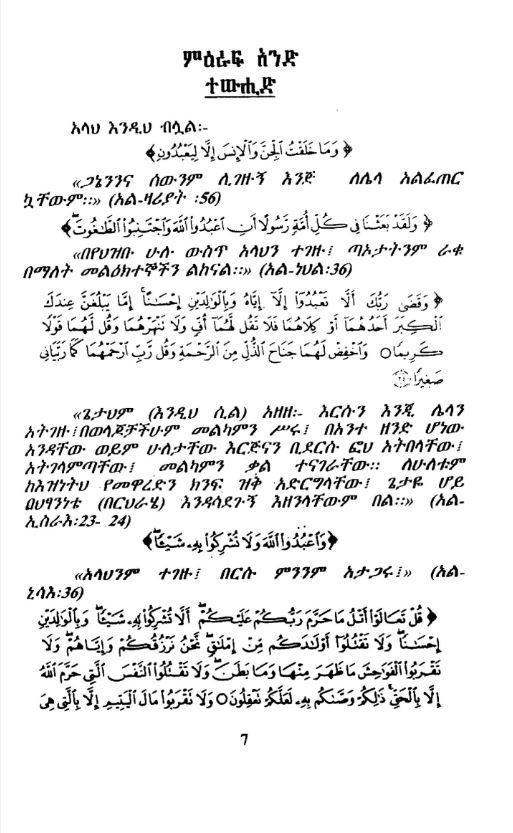 ምዕራፍ አንድ
ተውሒድ
አላህ እንዲህ ብሏል፡-
﴿ وَمَا خَلَقْتُ الْجِنَّ وَالْإِنسَ إِلَّا لِيَعْبُدُونِ ﴾
«ጋኔንንና ሰውንም ሊገዙኝ እንጅ ለሌላ አልፈጠር
ኳቸውም።» (አል-ዛሪያት ፡56)
﴿ وَلَقَدْ بَعَثْنَا فِي كُلِّ أُمَّةٍ رَّسُولًا أَنِ اعْبُدُوا اللَّهَ وَاجْتَنِبُوا الطَّاغُوتَ ﴾
«በየህዝቡ ሁሉ ውስጥ አላህን ተገዙ፤ ጣኦታትንም ራቁ
በማለት መልዕክተኞችን ልከናል።» (አል-ነህል፡36)
﴿ وَقَضَىٰ رَبُّكَ أَلَّا تَعْبُدُوا إِلَّا إِيَّاهُ وَبِالْوَالِدَيْنِ إِحْسَانًا إِمَّا يَبْلُغَنَّ عِندَكَ
الْكِبَرَ أَحَدُهُمَا أَوْ كِلَاهُمَا فَلَا تَقُل لَّهُمَا أُفٍّ وَلَا تَنْهَرْهُمَا وَقُل لَّهُمَا قَوْلًا
كَرِيمًا ۝ وَاخْفِضْ لَهُمَا جَنَاحَ الذُّلِّ مِنَ الرَّحْمَةِ وَقُل رَّبِّ ارْحَمْهُمَا كَمَا رَبَّيَانِي
صَغِيرًا
«ጌታህም (እንዲህ ሲል) አዘዘ፡- እርሱን እንጂ ሌላን
አትገዙ፤በወላጆቻችሁም መልካምን ሥሩ፤ በአንተ ዘንድ ሆነው
አንዳቸው ወይም ሁለታቸው እርጅናን ቢደርሱ ፎህ አትበላቸው፤
አትገላምጣቸው፤ መልካምን ቃል ተናገራቸው። ለሁለቱም
ከእዝነትህ የመዋረድን ክንፍ ዝቅ አድርግላቸው፤ ጌታዬ ሆይ
በህፃንነቴ (በርህራሄ) እንዳሳደጉኝ እዘንላቸውም በል።» (አል-
ኢስራእ፡23- 24)
﴿ وَاعْبُدُوا اللَّهَ وَلَا تُشْرِكُوا بِهِ شَيْئًا ﴾
«አላህንም ተገዙ፤ በርሱ ምንንም አታጋሩ፤» (አል-
ኒሳእ፡36)
﴿ قُلْ تَعَالَوْا أَتْلُ مَا حَرَّمَ رَبُّكُمْ عَلَيْكُمْ أَلَّا تُشْرِكُوا بِهِ شَيْئًا وَبِالْوَالِدَيْنِ
إِحْسَانًا وَلَا تَقْتُلُوا أَوْلَادَكُم مِّنْ إِمْلَاقٍ نَّحْنُ نَرْزُقُكُمْ وَإِيَّاهُمْ وَلَا
تَقْرَبُوا الْفَوَاحِشَ مَا ظَهَرَ مِنْهَا وَمَا بَطَنَ وَلَا تَقْتُلُوا النَّفْسَ الَّتِي حَرَّمَ اللَّهُ
إِلَّا بِالْحَقِّ ذَٰلِكُمْ وَصَّاكُم بِهِ لَعَلَّكُمْ تَعْقِلُونَ ۝ وَلَا تَقْرَبُوا مَالَ الْيَتِيمِ إِلَّا بِالَّتِي هِيَ
7